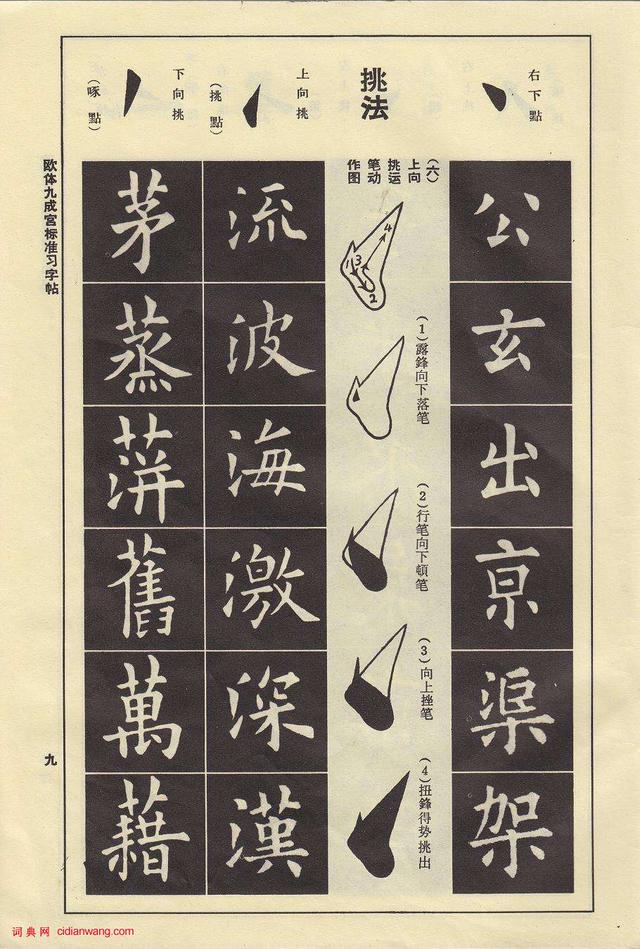 右下點
公玄出亰渠架
挑法
(六)
上向
挑运
笔动
作图
1 2 3 4
(1)露鋒向下落笔
(2)行笔向下頓笔
(3)向上挫笔
(4)扭鋒得势挑出
上向挑
(挑點)
流波海激深漢
下向挑
(啄點)
茅蒸蓱舊萬藉
欧体九成宫标准习字帖
九
词典网 cidianwang.com